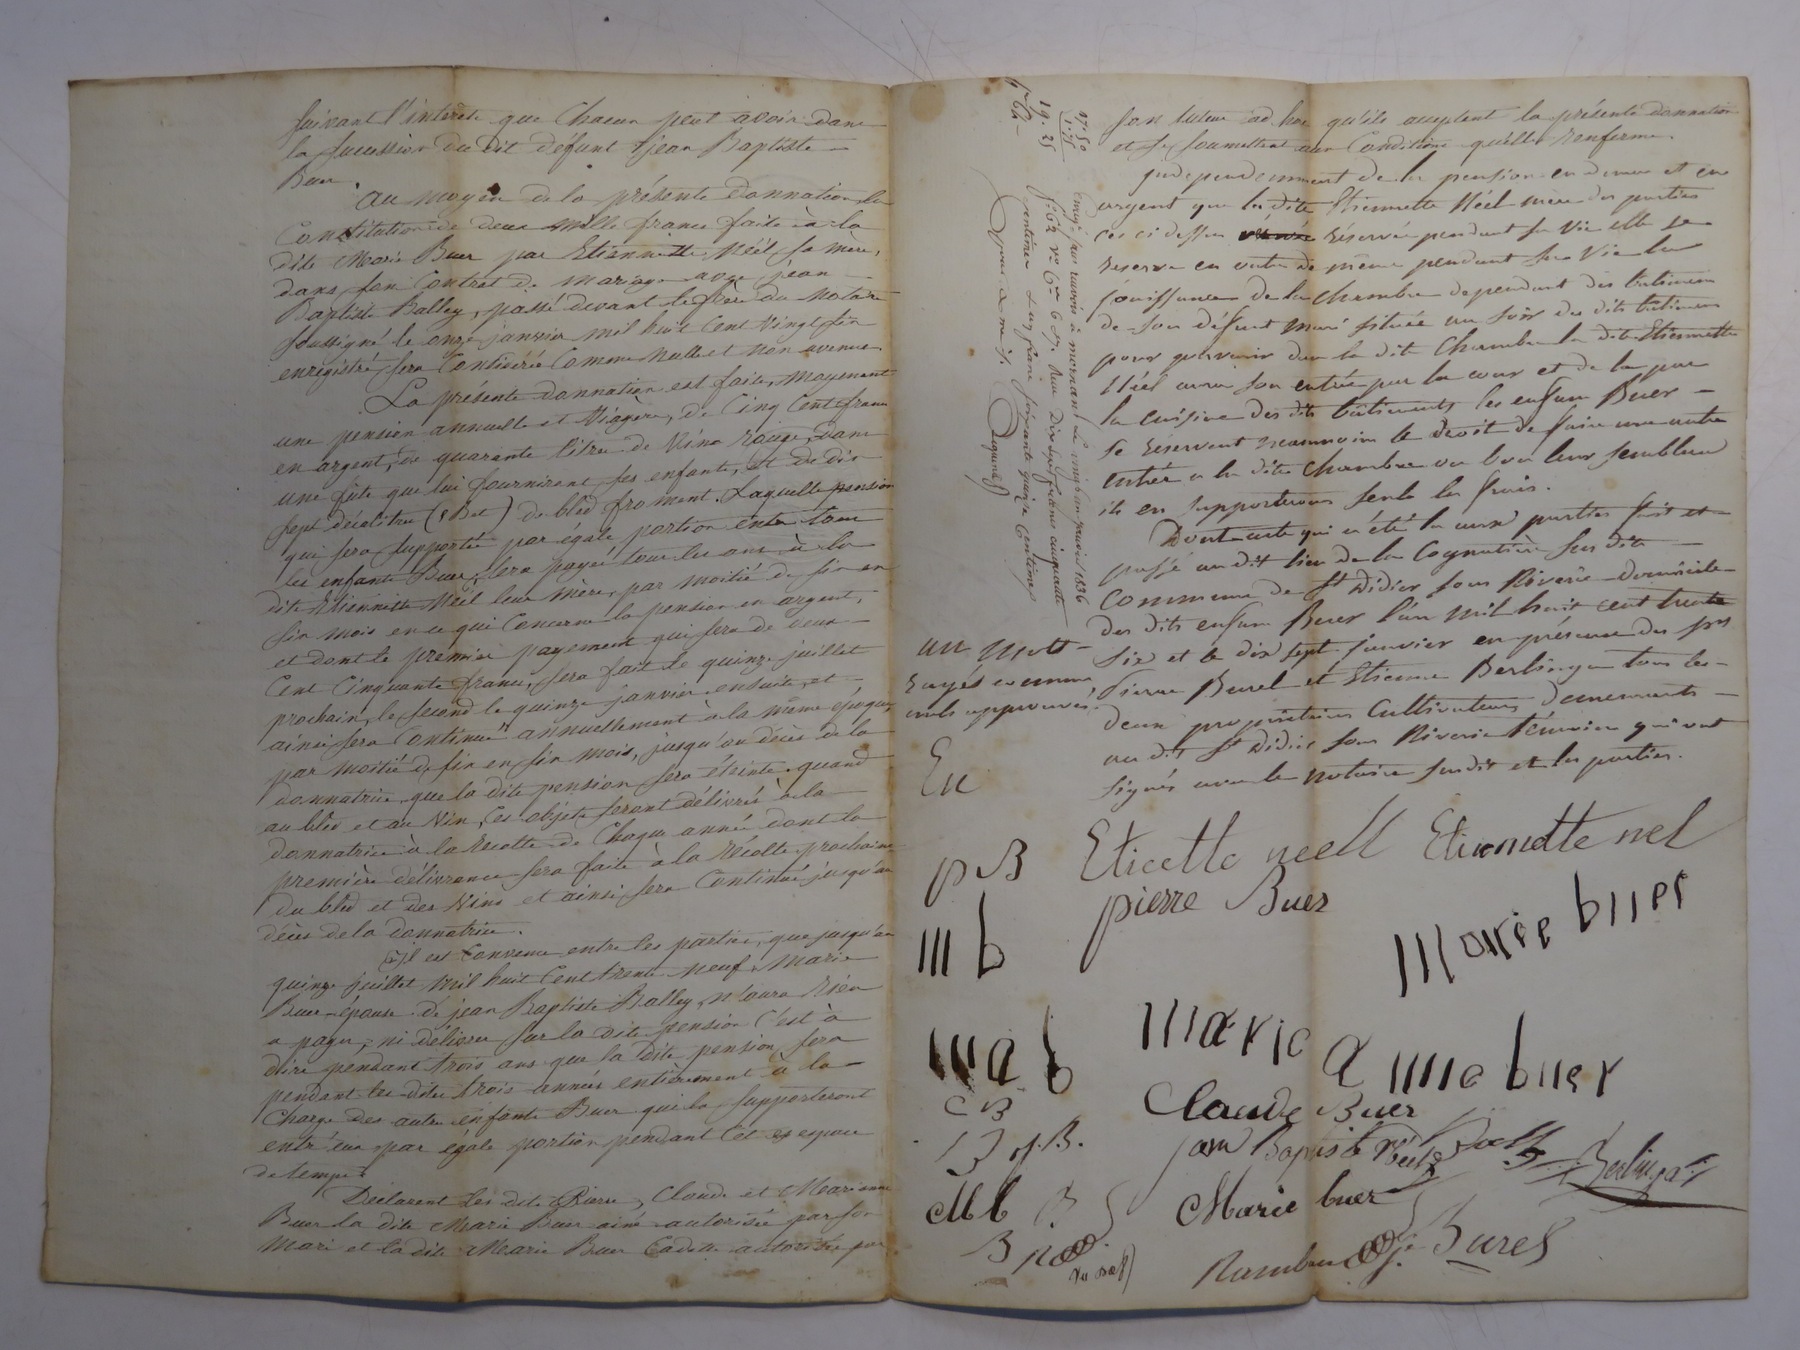 suivant l'intérêt que Chacun peut avoir dans
la succession du dit défunt jean Baptiste
Buer.
Au moyen de la présente donnation, la
Constitution de deux mille francs faite à la
dite Marie Buer par Etiennette Néél sa mère,
dans son Contrat de Mariage avec jean
Baptiste Balley, passé devant le frère du Notaire
soussigné le onze janvier mil huit Cent Vingt six
enregistré, sera Considérée Comme Nulle et non avenue.
La présente donnation est faite, Moyennant
une pension annuelle et Viagère, de Cinq Cent francs
en argent, de quarante litres de Vins rouge, dans
une fûte que lui fourniront ses enfants, et de dix
sept décalitres de bled froment. Laquelle pension
qui sera supportée par égale portion entre tous
les enfants Buer, sera payée tous les ans à la
dite Etiennette Néél leur Mère, par moitié de six en
six mois en ce qui Concerne la pension en argent,
et dont le premier payement qui sera de deux
Cent Cinquante francs, sera fait le quinze juillet
prochain, le second le quinze janvier ensuite, et
ainsi sera Continué annuellement à la même époque,
par moitié de six en six mois, jusqu'au décès de la
donnatrice, que la dite pension sera éteinte. quand
au bled et au Vin, Ces objets seront délivrés à la
donnatrice à la Récolte de Chaque année dont la
première délivrance sera faite à la Récolte prochaine
du bled et des Vins et ainsi sera Continué jusqu'au
décès de la donnatrice.
Il est Convenu entre les parties, que jusqu'au
quinze juillet Mil huit Cent trente Neuf, Marie
Buer épouse de jean Baptiste Balley, n'aura Rien
a payer, ni délivrer sur la dite pension C'est à
dire pendant trois ans que la dite pension sera
pendant les dites trois années entièrement à la
Charge des autres enfants Buer qui la supporteront
entr'eux par égale portion pendant Cet espace
de temps.
Déclarent les dits Pierre, Claude et Marianne
Buer la dite Marie Buer ainé autorisée par son
Mari et la dite Marie Buer Cadette autorisée par
son tuteur ad hoc qu'ils acceptent la présente donnation
et se soumettent aux Conditions qu'elle Renferme.
jndépendemment de la pension en denrée et en
argent que la dite Etiennette Néél mère des parties
ci dessus Réservée pendant sa Vie elle se
Réserve en outre de même pendant sa Vie la
jouissance de la chambre dependant des batiments
de son défunt mari située au soir des dits batiments
pour parvenir dans la dite Chambre la dite Etiennette
Néél aura son entrée par la cour et de la par
la cuisine des dits bâtiments les enfans Buer
se réservent néanmoins le droit de faire une autre
entrée a la dite chambre ou bon leur semblera
ils en supporteront seuls les frais.
Dont acte qui a été lu aux parties fait et
passé au dit lieu de la Cognatière sus dite
commune de St Didier sous Riverie domicile
des dits enfans Buer l'an mil huit cent trente
six et le dix sept janvier en présence des srs
Pierre Burel et Etienne Berlingen tous les
deux propriétaires Cultivateurs demeurants
au dit St Didier sous Riverie témoins qui ont
signés avec le notaire susdit et les parties.
17.50
1.75
19.25
Enregistré sans renvois à mornant le vingt janvier 1836
un mot
Rayés comme
nuls approuvés.
En
p B
m b
ma b
C B
B j.B.
Mb B
Eticette neell Etiennette nel
pierre Buer
Marie buer
marie a nne buer
Claude Buer
jean Baptiste
Marie buer
Burel